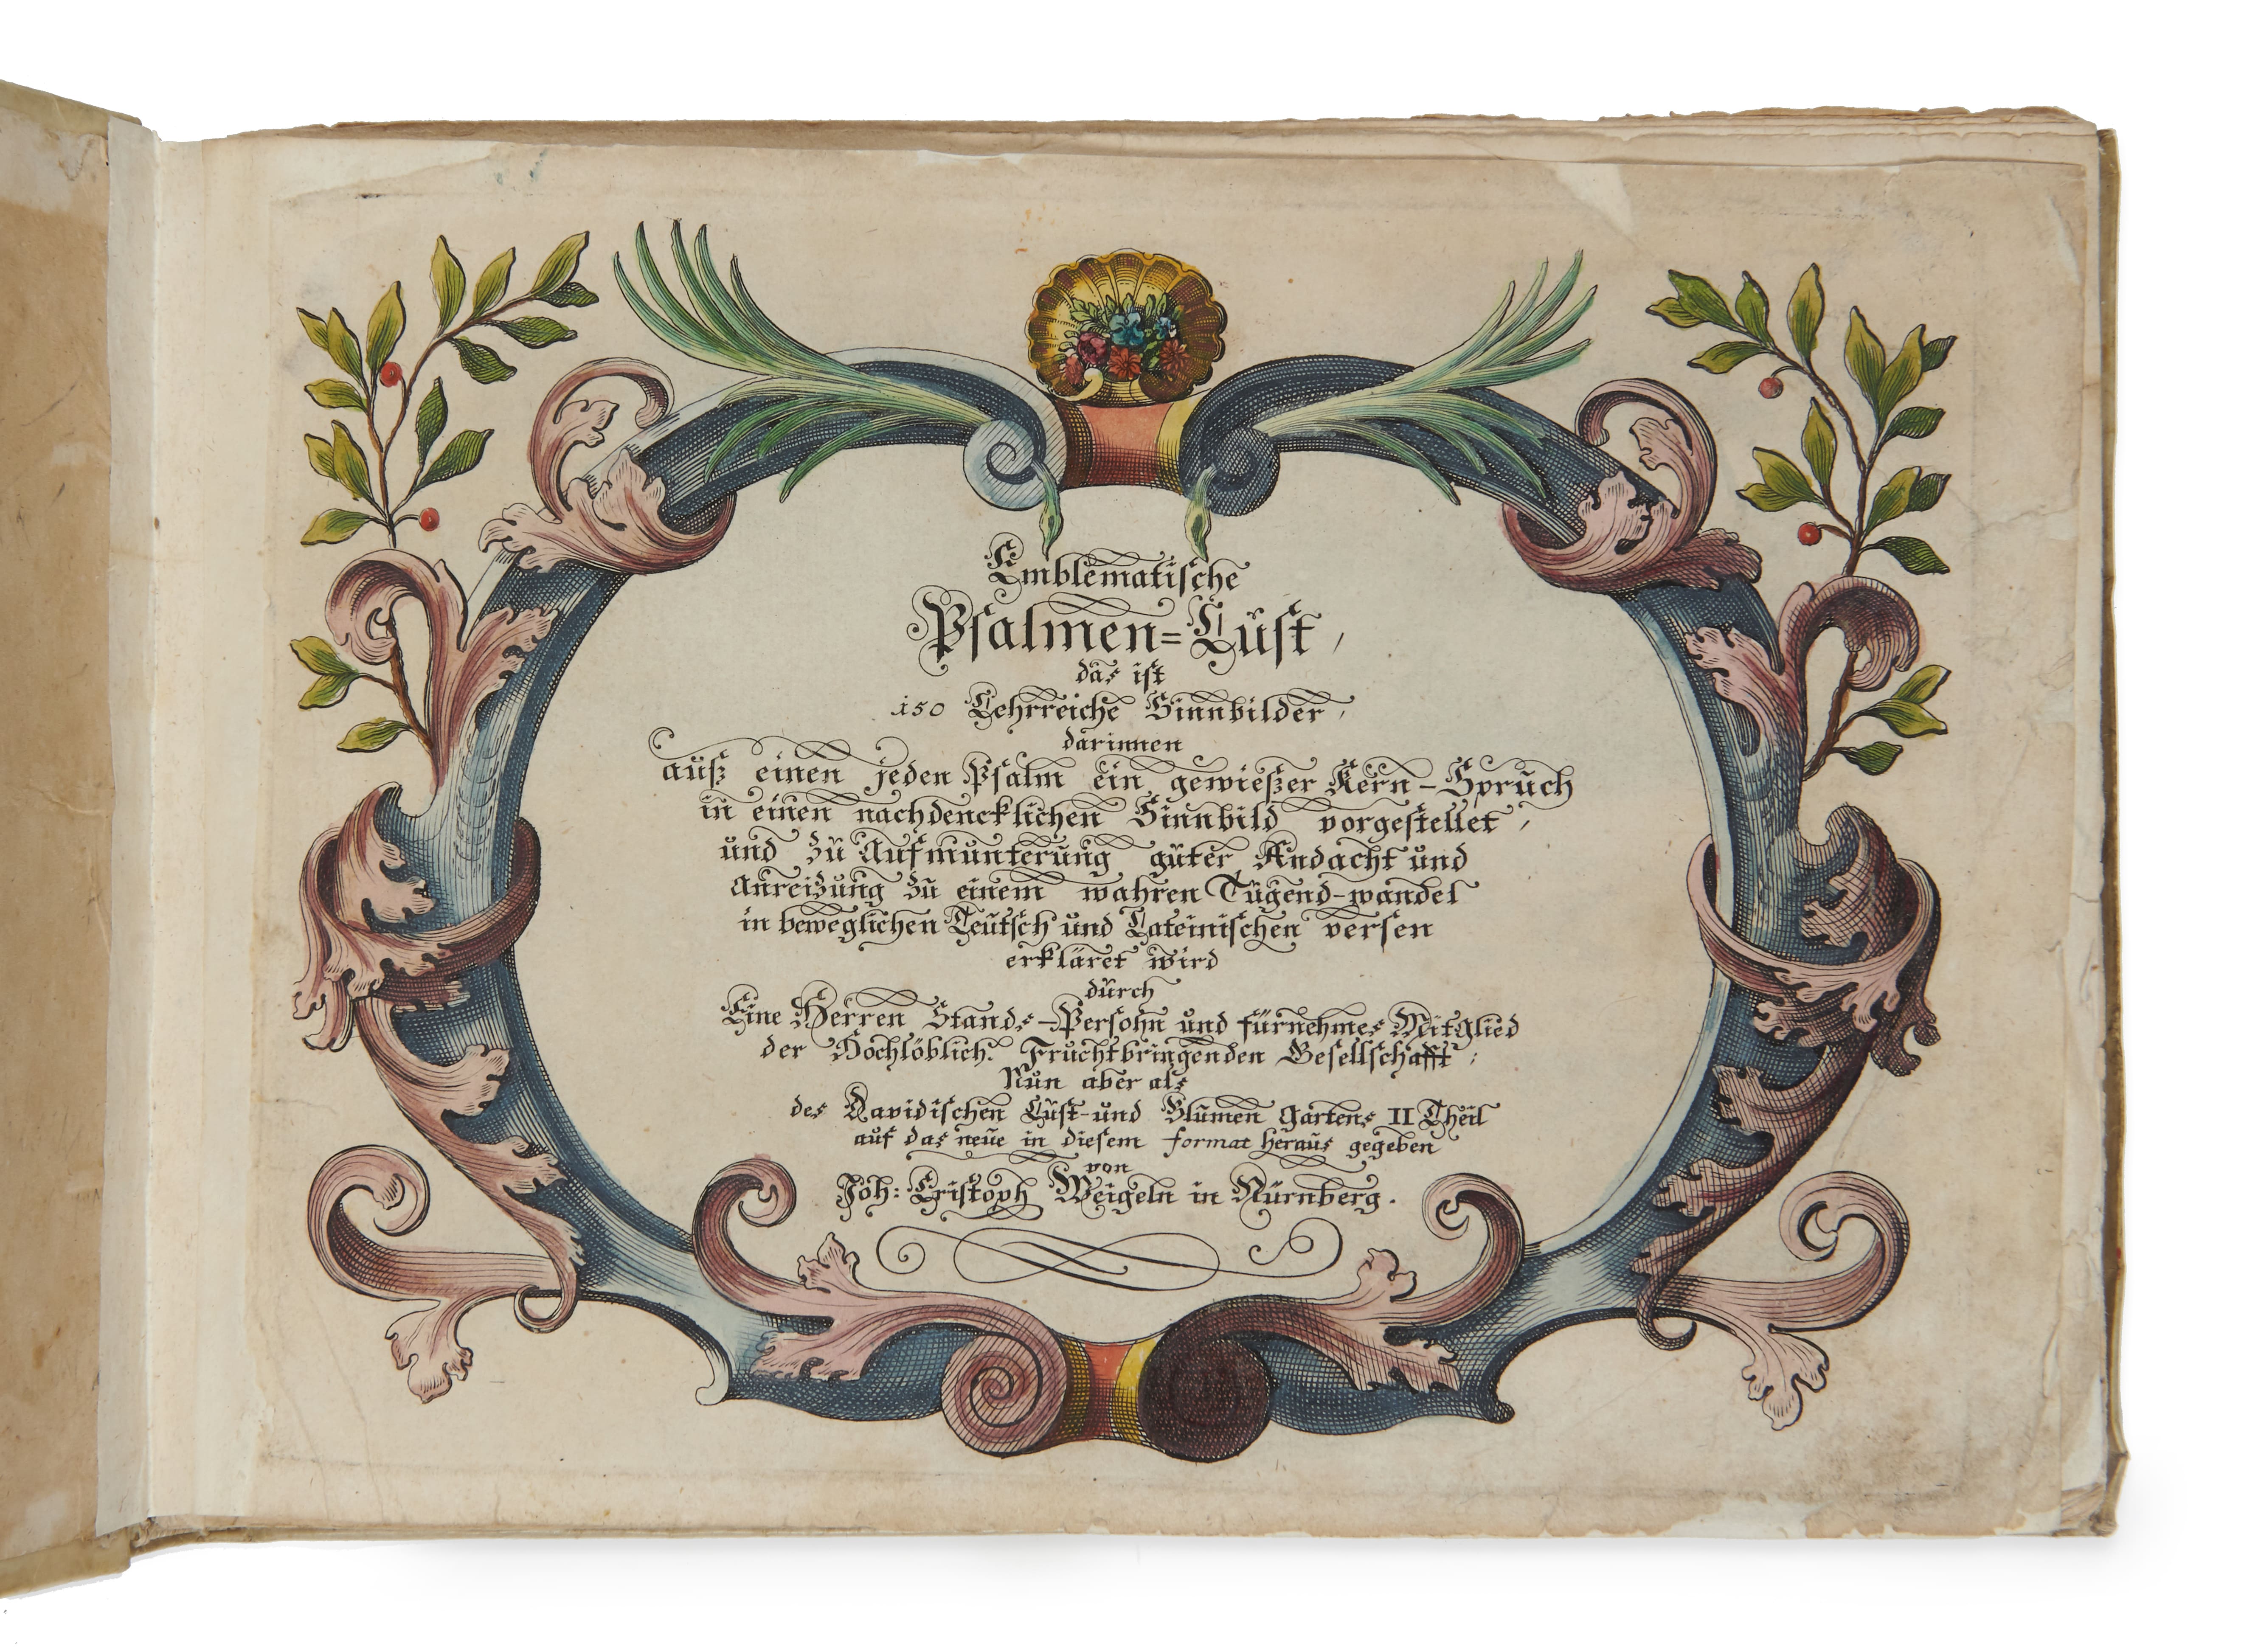 Emblematische
Psalmen=Lust,
das ist
150 Lehrreiche Sinnbilder,
darinnen
auß einen jeden Psalm ein gewießer Kern-Spruch
in einen nachdencklichen Sinnbild vorgestellet,
und zu Aufmunterung guter Andacht und
Anreizung zu einem wahren Tugend-wandel
in beweglichen Teutsch und Lateinischen versen
erkläret wird
durch
Eine Herren Stands-Persohn und fürnehmes Mitglied
der Hochlöblich: Fruchtbringenden Gesellschafft;
Nun aber als
des Davidischen Lust-und Blumen gartens II Theil
auf das neue in diesem format heraus gegeben
von
Joh: Cristoph Weigeln in Nürnberg.